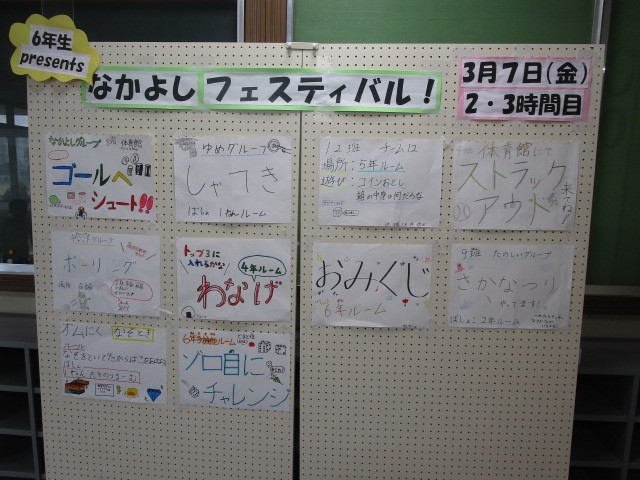 6年生
presents
なかよし フェスティバル!
3月7日(金)
2・3時間目
なかよしグループ
体育館
ゴールへ
シュート!!
ゆめグループ
しゃてき
ばしょ 1ねんルーム
12班 チーム12
場所:5年ルーム
遊び:コインおとし
箱の中身は何だろな
体育館にて
ストラック
アウト
来てね!
ボーリング
トップ3に
入れるかな
4年ルーム
わなげ
おみくじ
6年ルーム
9班 たのしいグループ
さかなつり
やってます!
ばしょ 2年ルーム
ルール
ゾロ目に
チャレンジ